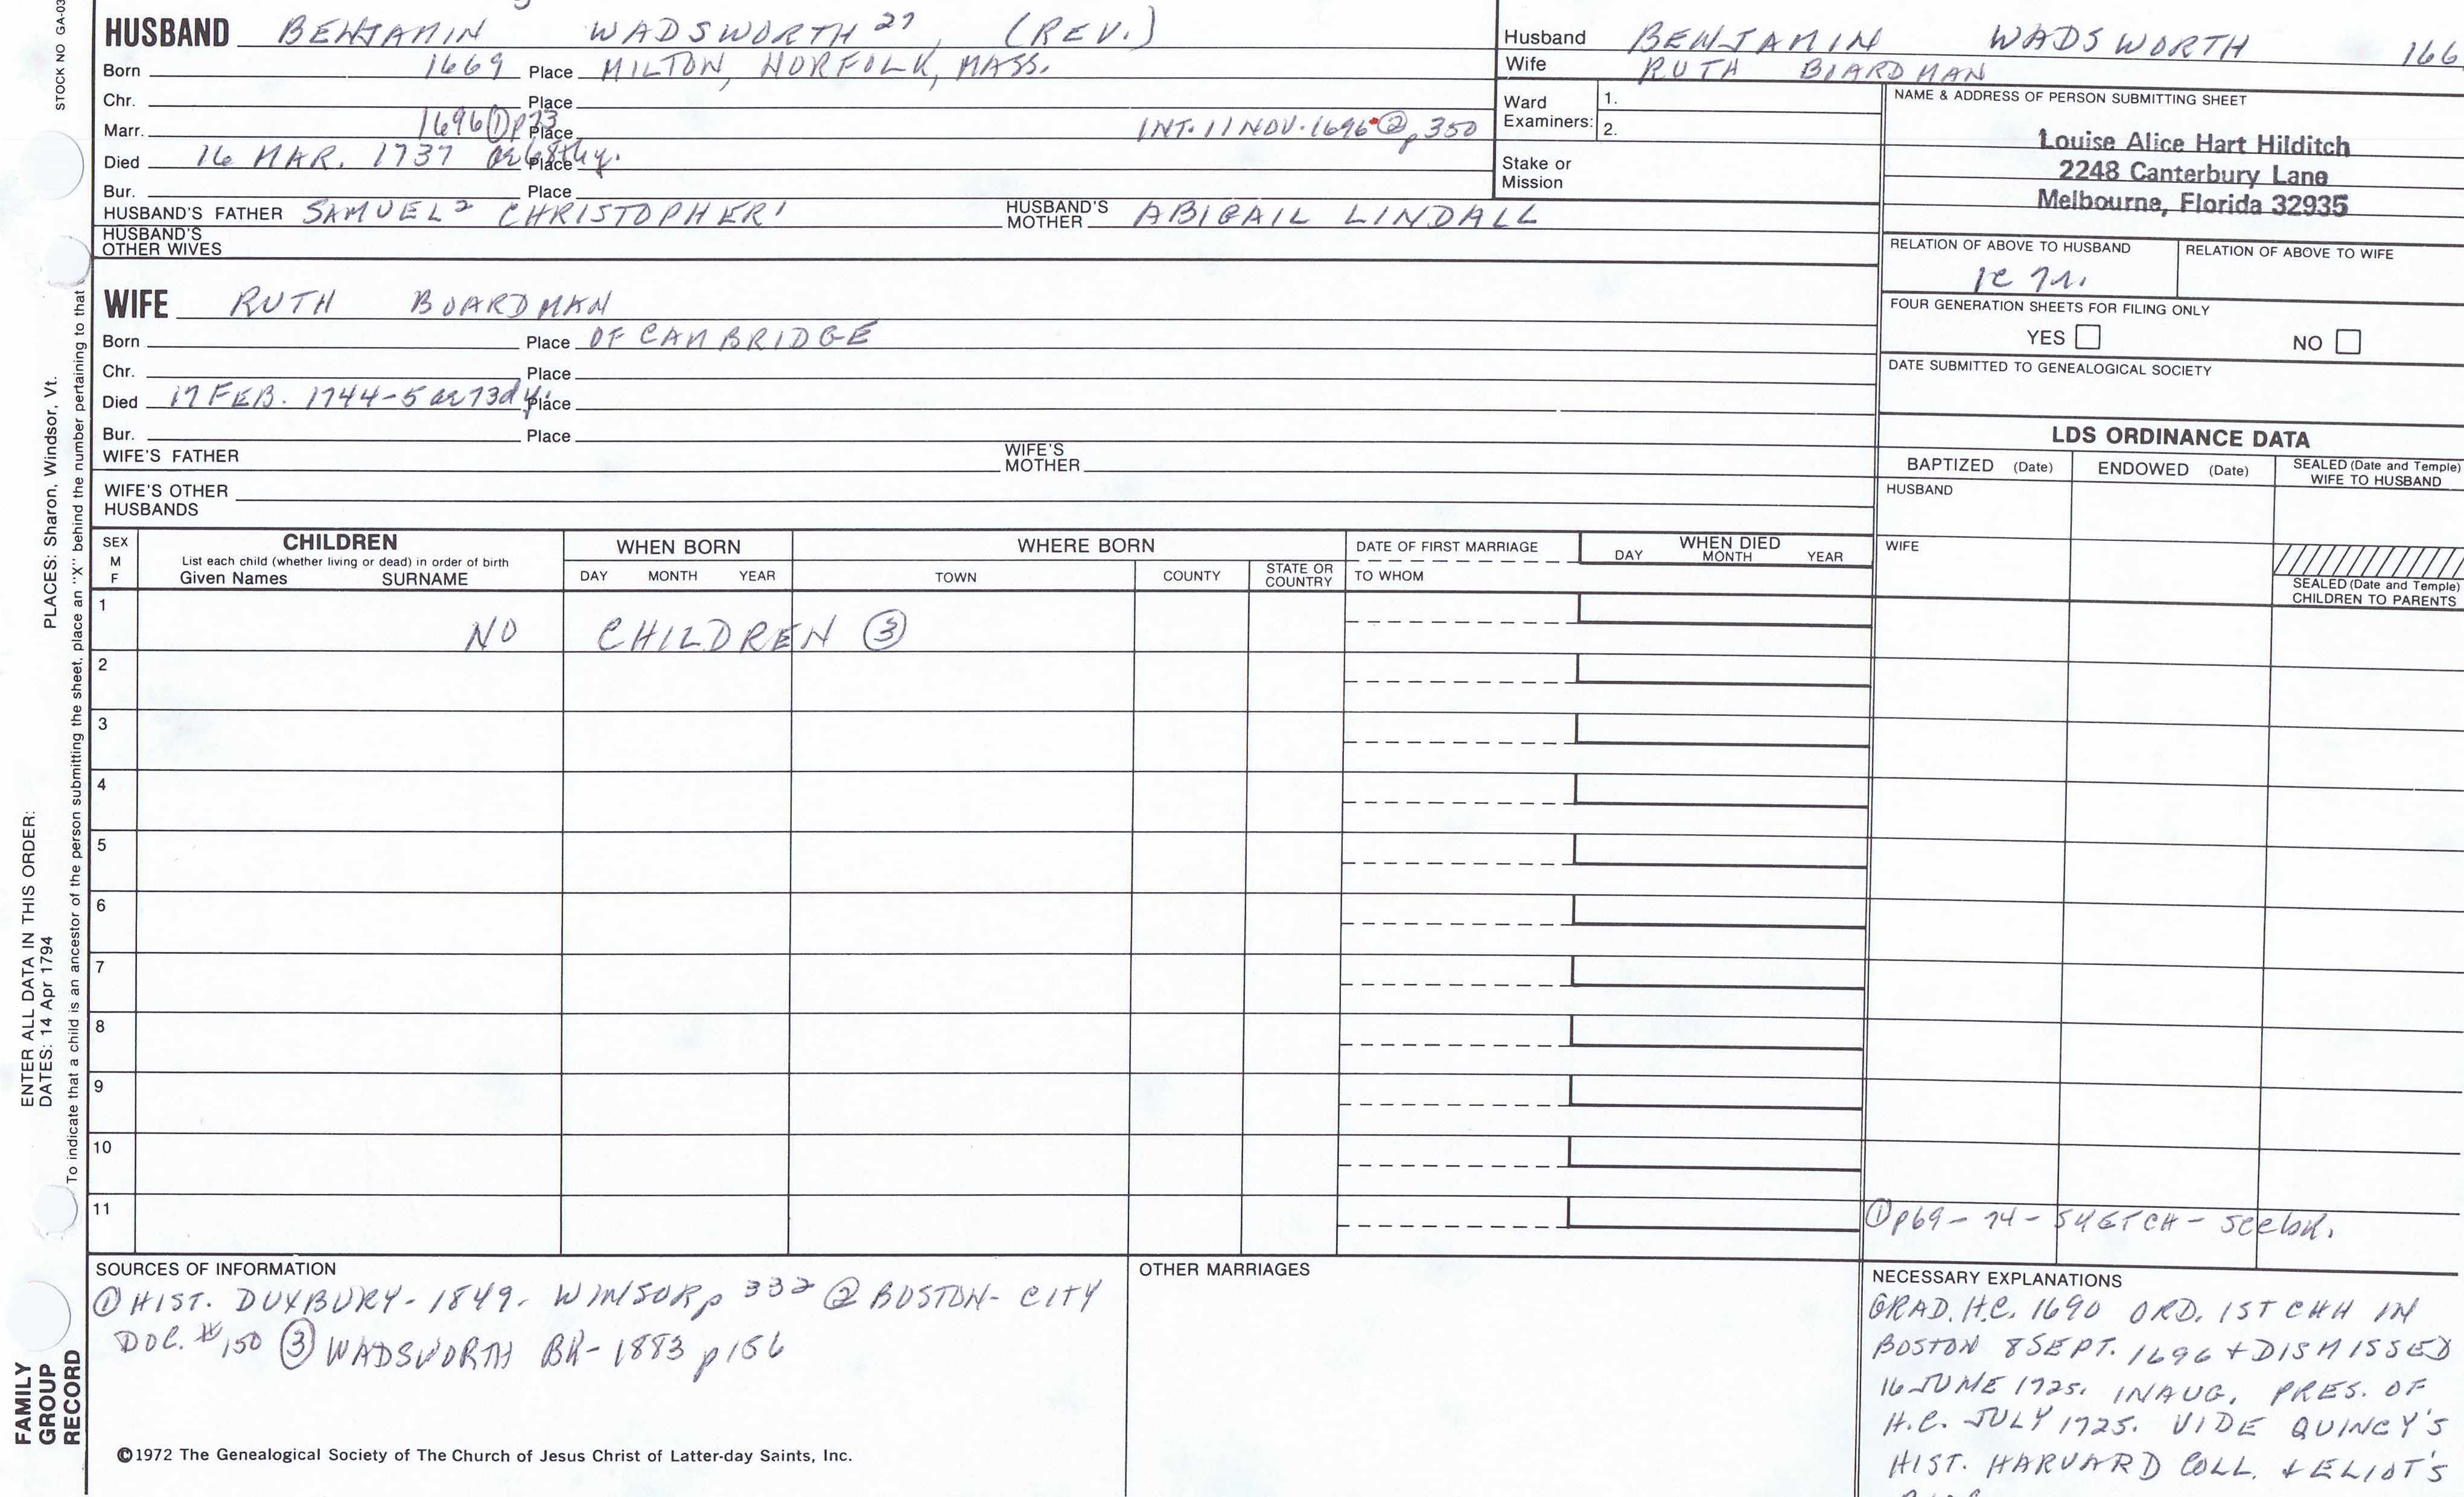 STOCK NO GA-03
HUSBAND BENJAMIN WADSWORTH 27, (REV.)
Born 1669 Place MILTON, NORFOLK, MASS.
Chr. Place
Marr. 1696 ① p73 Place INT. 11 NOV. 1696 ② p350
Died 16 MAR. 1737 ae 68thy. Place
Bur. Place
HUSBAND'S FATHER SAMUEL2 CHRISTOPHER1 HUSBAND'S MOTHER ABIGAIL LINDALL
HUSBAND'S OTHER WIVES
WIFE RUTH BOARDMAN
Born Place OF CAMBRIDGE
Chr. Place
Died 17 FEB. 1744-5 ae 73d y. Place
Bur. Place
WIFE'S FATHER WIFE'S MOTHER
WIFE'S OTHER HUSBANDS
Husband BENJAMIN WADSWORTH 166
Wife RUTH BOARDMAN
Ward Examiners: 1.
2.
Stake or Mission
NAME & ADDRESS OF PERSON SUBMITTING SHEET
Louise Alice Hart Hilditch
2248 Canterbury Lane
Melbourne, Florida 32935
RELATION OF ABOVE TO HUSBAND RELATION OF ABOVE TO WIFE
FOUR GENERATION SHEETS FOR FILING ONLY
YES NO
DATE SUBMITTED TO GENEALOGICAL SOCIETY
LDS ORDINANCE DATA
BAPTIZED (Date) ENDOWED (Date) SEALED (Date and Temple) WIFE TO HUSBAND
HUSBAND
WIFE
SEALED (Date and Temple) CHILDREN TO PARENTS
SEX M F
CHILDREN
List each child (whether living or dead) in order of birth
Given Names SURNAME
WHEN BORN
DAY MONTH YEAR
WHERE BORN
TOWN COUNTY STATE OR COUNTRY
DATE OF FIRST MARRIAGE
TO WHOM
WHEN DIED
DAY MONTH YEAR
1 NO CHILDREN ③
2
3
4
5
6
7
8
9
10
11
① p69-74-SKETCH-see bk.
SOURCES OF INFORMATION
① HIST. DUXBURY-1849- WINSOR p 332 ② BOSTON-CITY
DOC. #150 ③ WADSWORTH BK-1883 p156
©1972 The Genealogical Society of The Church of Jesus Christ of Latter-day Saints, Inc.
OTHER MARRIAGES
NECESSARY EXPLANATIONS
GRAD. H.C. 1690 ORD. 1ST CHH IN
BOSTON 8 SEPT. 1696 + DISMISSED
16 JUNE 1725. INAUG. PRES. OF
H.C. JULY 1725. VIDE QUINCY'S
HIST. HARVARD COLL. + ELIOT'S
PLACES: Sharon, Windsor, Vt.
ENTER ALL DATA IN THIS ORDER:
DATES: 14 Apr 1794
To indicate that a child is an ancestor of the person submitting the sheet, place an "X" behind the number pertaining to that
FAMILY
GROUP
RECORD